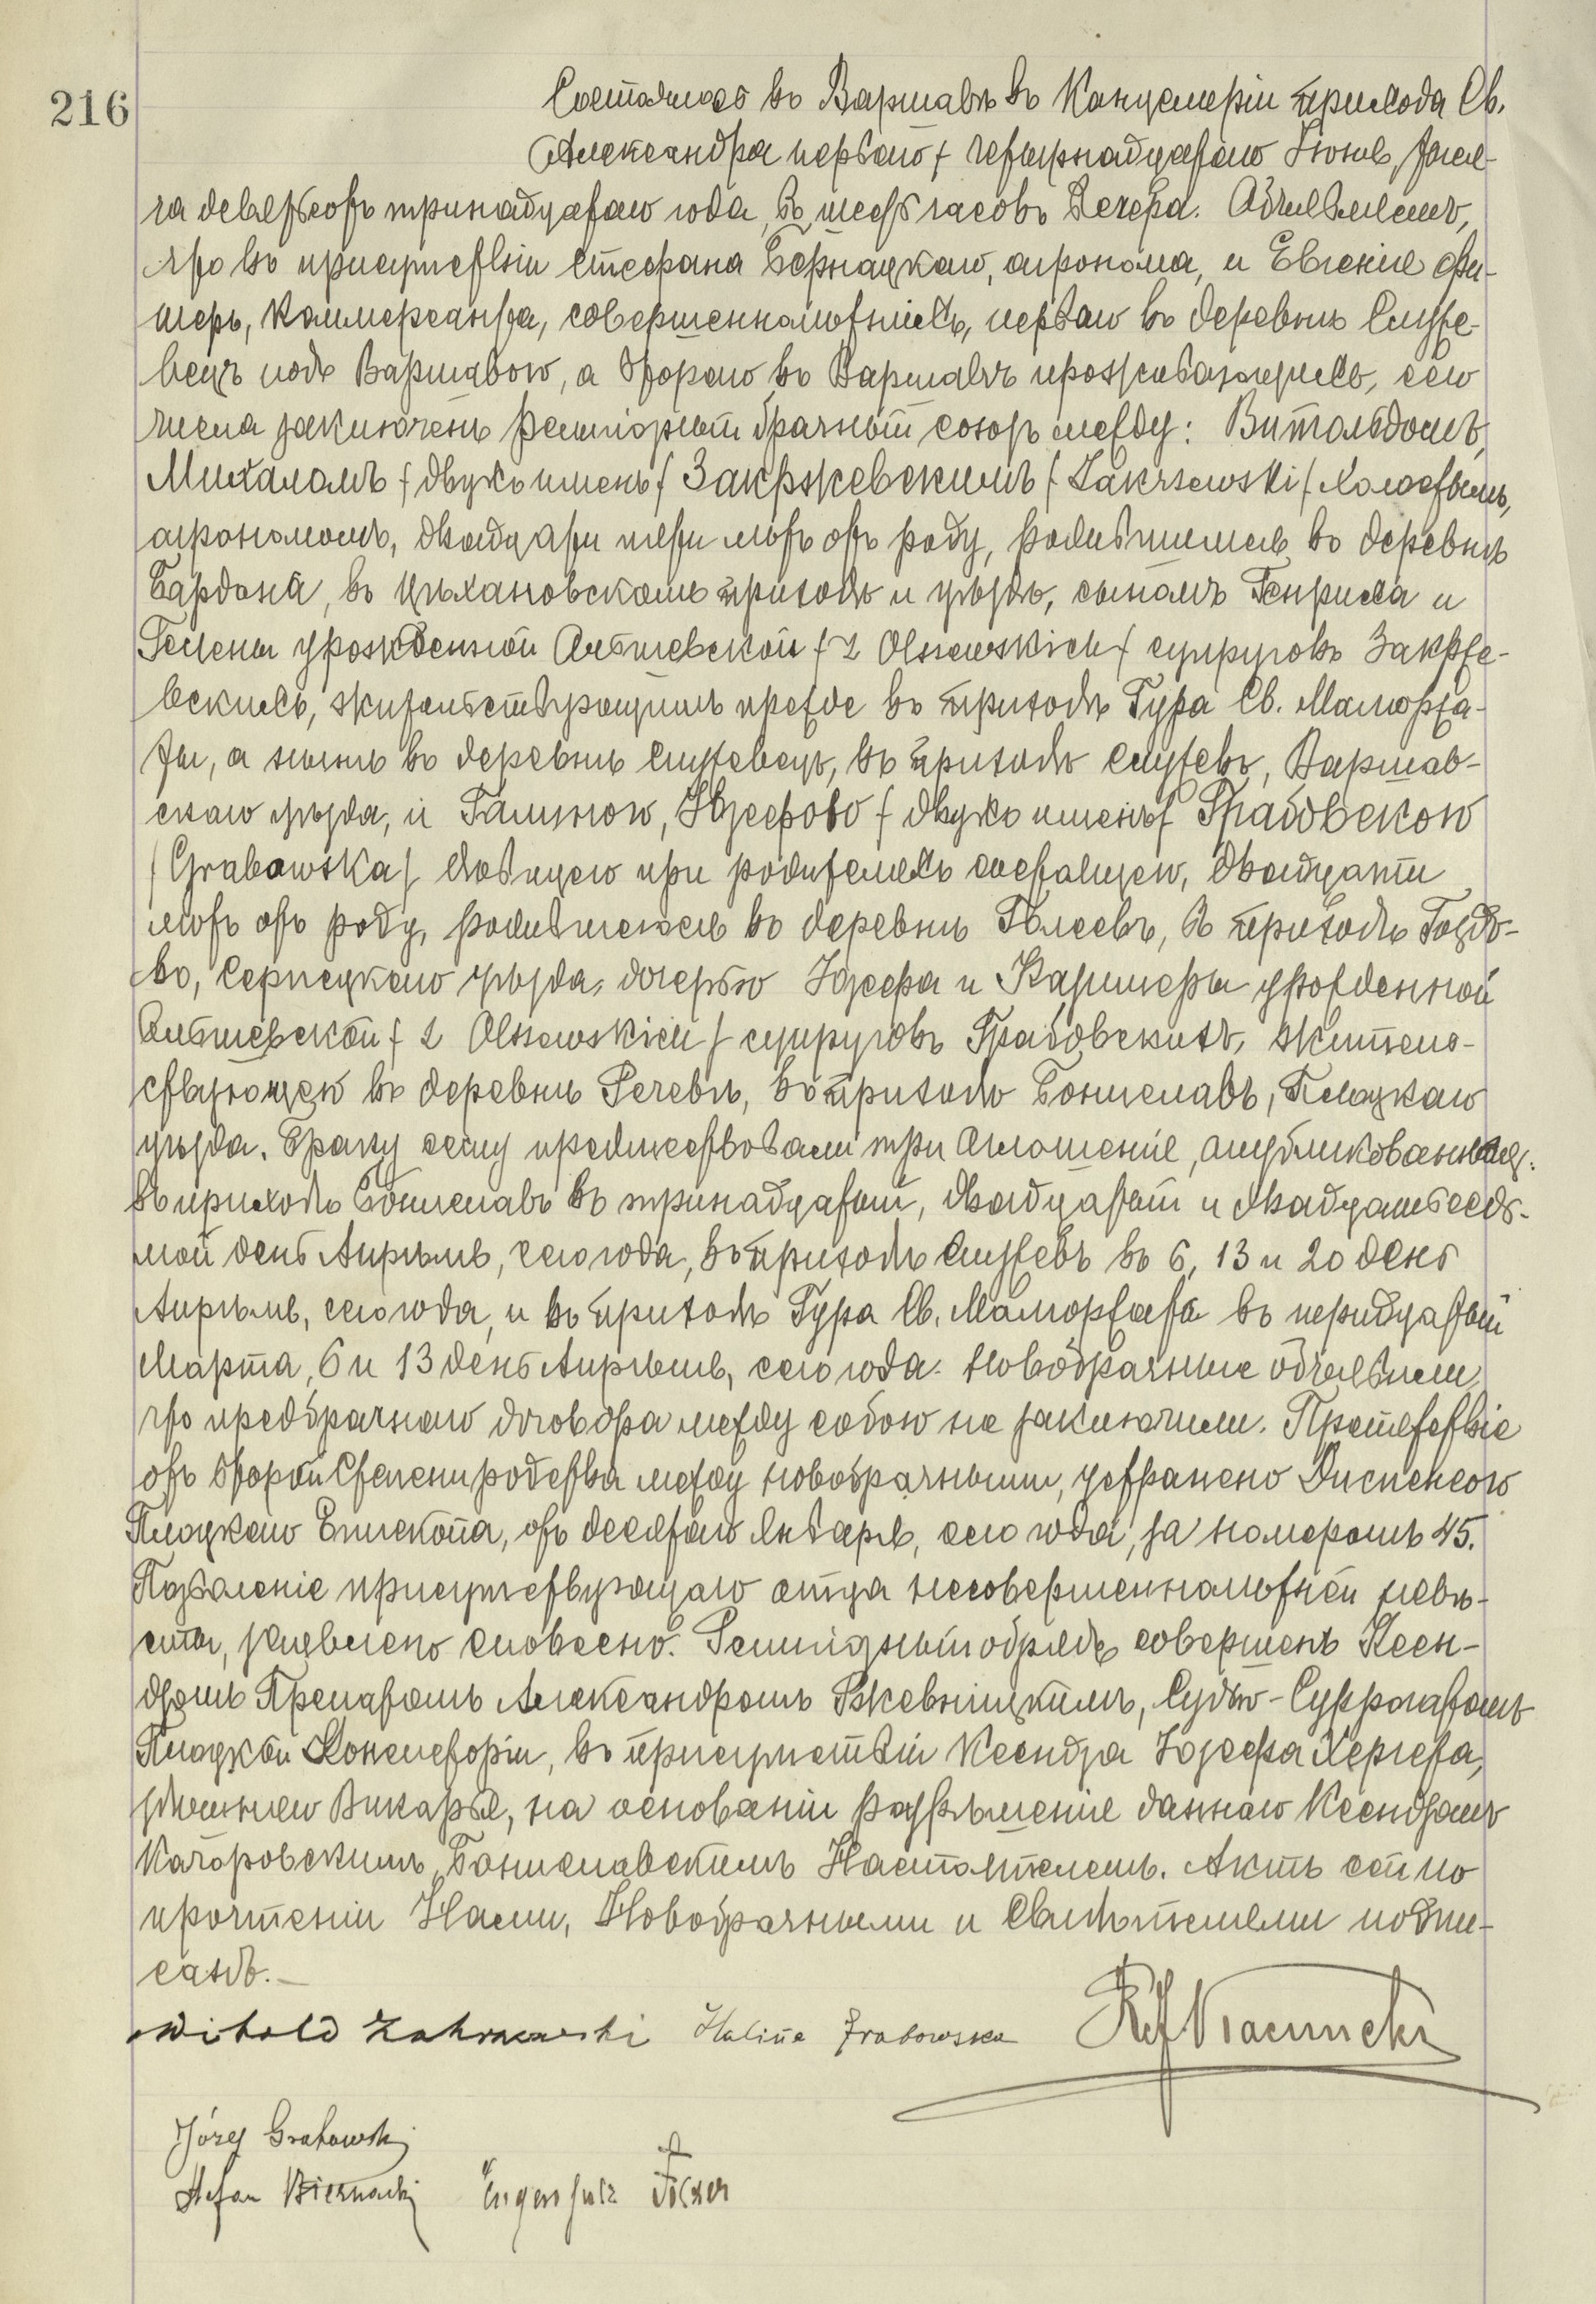 216
Состоялось въ Варшавѣ въ Канцеляріи прихода Св.
Александра перваго / четырнадцатаго Іюня, тыся-
ча девятьсотъ тринадцатаго года, въ шесть часовъ вечера. Объявляемъ,
что въ присутствіи Стефана Бернацкаго, агронома, и Евгенія Фи-
шеръ, коммерсанта, совершеннолѣтнихъ, перваго въ деревнѣ Служе-
вецъ подъ Варшавою, а втораго въ Варшавѣ проживающихъ, сего
числа заключенъ религіозный брачный союзъ между: Витольдомъ,
Михаломъ / двухъ именъ / Закржевскимъ / Zakrzewski / холостымъ,
агрономомъ, двадцати пяти лѣтъ отъ роду, родившимся въ деревнѣ
Бардона, въ Цѣхановскомъ приходѣ и уѣздѣ, сыномъ Генриха и
Гелены урожденной Ольшевской / z Olszewskich / супруговъ Закрже-
вскихъ, жительствующимъ прежде въ приходѣ Гура Св. Малгоржа-
ты, а нынѣ въ деревнѣ Служевецъ, въ приходѣ Служевъ, Варшав-
скаго уѣзда, и Галиною, Юзефою / двухъ именъ / Грабовскою
/ Grabowska / дѣвицею при родителяхъ состоящею, двадцати
лѣтъ отъ роду, родившеюся въ деревнѣ въ приходѣ Гоздо-
во, Серпецкаго уѣзда, дочерью Юзефа и Казимеры урожденной
Ольшевской / z Olszewskich / супруговъ Грабовскихъ, жительс-
ствующею въ деревнѣ въ приходѣ Бониславъ, Плоцкаго
уѣзда. Браку сему предшествовали три оглашенія, опубликованныя:
въ приходѣ Бониславъ въ тринадцатый, двадцатый и двадцать седь-
мой день Апрѣля, сего года, въ приходѣ Служевъ въ 6, 13 и 20 день
Апрѣля, сего года, и въ приходѣ Гура Св. Малгоржата въ
Марта, 6 и 13 день Апрѣля, сего года. Новобрачные объявили,
что предбрачнаго договора между собою не заключили. Препятствіе
отъ второй степени родства между новобрачными, устранено Диспенсою
Плоцкаго Епископа, отъ десятаго Января, сего года, за номеромъ 45.
Позволеніе присутствующаго отца несовершеннолѣтней невѣ-
сты, изъявлено словесно. Религіозный обрядъ совершенъ Ксен-
дзомъ Прелатомъ Александромъ Судьёю-Суррогатомъ
Плоцкой Консисторіи, въ присутствіи Ксендза Юзефа
здѣшняго Викарія, на основаніи разрѣшенія даннаго Ксендзомъ
Бониславскимъ Настоятелемъ. Актъ сей по
прочтеніи Нами, Новобрачными и Свидѣтелями подпи-
санъ.—
Witold Zakrzewski Halina Grabowska
Józef Grabowski
Stefan Biernacki Eugenjusz Fiszer